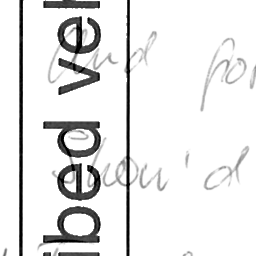 ibed veh
And for
Show'd